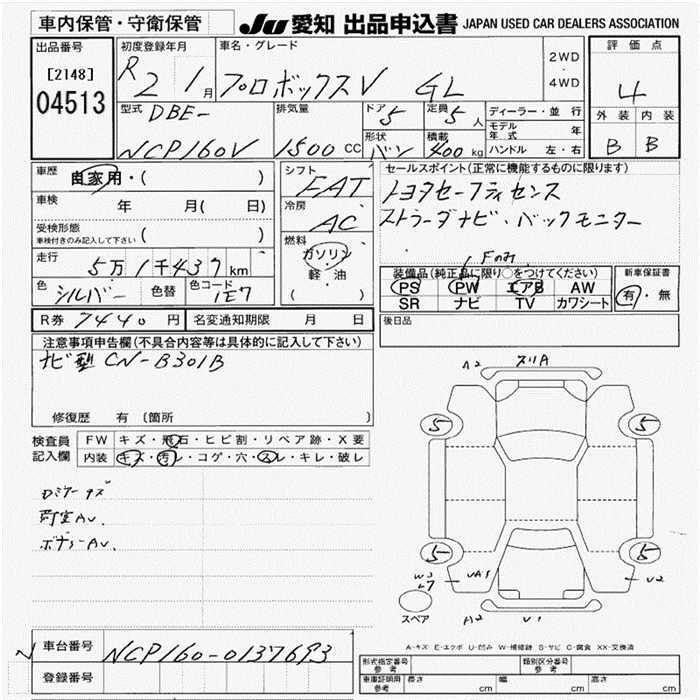 車内保管・守衛保管
JU 愛知 出品申込書 JAPAN USED CAR DEALERS ASSOCIATION
出品番号
[2148]
04513
初度登録年月
R 2 1月
車名・グレード
プロボックスV GL
2WD
・
4WD
評価点
4
外装 内装
B B
型式
DBE-
NCP160V
排気量
1500 CC
ドア 5
定員 5人
形状 バン
積載 400 kg
ディーラー・並行
モデル年式 年
ハンドル 左・右
車歴 自家用・( )
車検 年 月( 日)
受検形態
車検付きのみ記入して下さい ( )
走行 5万1千437km
色 シルバー 色替 色コード 1E7
シフト
FAT
冷房
AC
燃料
ガソリン
・
軽・油
( )
セールスポイント(正常に機能するものに限ります)
トヨタセーフティセンス
ストラーダナビ・バックモニター
Fのみ
装備品(純正品に限り○をつけてください)
PS PW エアB AW
SR ナビ TV カワシート
新車保証書
有・無
R券 7440円 名変通知期限 月 日
後日品
注意事項申告欄(不具合内容等は具体的に記入して下さい)
ナビ型 CN-B301B
修復歴 有 (箇所 )
検査員記入欄
FW キズ・飛石・ヒビ割・リペア跡・X要
内装 キズ・汚レ・コゲ・穴・スレ・キレ・破レ
ボデーAU.
A2
5 5
5 5
W3
U2
スペア
A2 U1
A-キズ E-エクボ U-凹み W-補修跡 S-サビ C-腐食 XX-交換済
車台番号 NCP160-0137693
登録番号
形式指定番号
参考
類別区分番号
参考
車庫証明用
参考
長さ cm 幅 cm 高さ cm